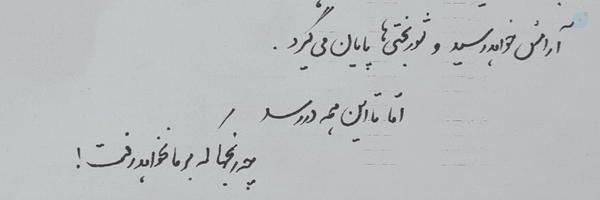 آرامش خواهد رسید و شوربختی‌ها پایان می‌گیرد.
اما تا این همه در رسد
چه رنجها که بر ما نخواهد رفت!